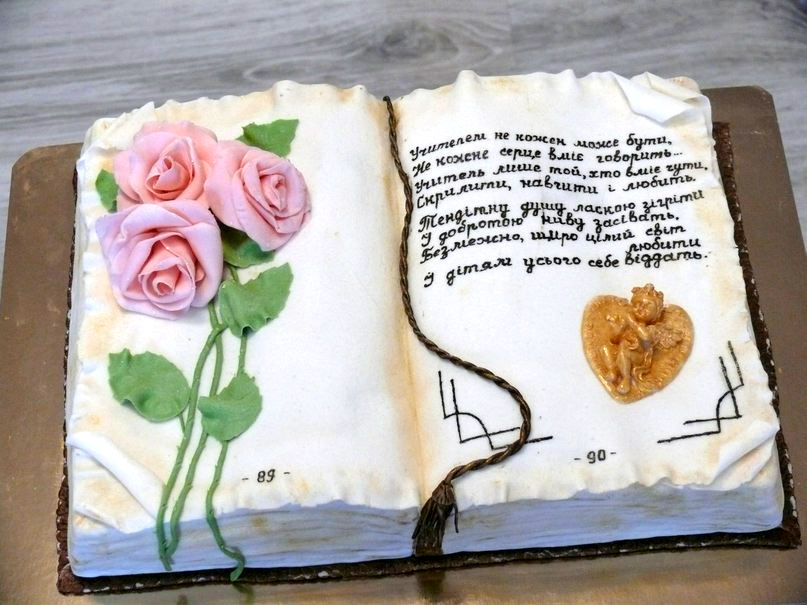 Учителем не кожен може бути,
Не кожне серце вміє говорить...
Учитель лише той, хто вміє чути,
Скрилити, навчити і любить.
Тендітну душу ласкою зігріти
І добротою ниву засівать,
Безмежно, щиро цілий світ любити
І дітям усього себе віддать.
- 89 -
- 90 -